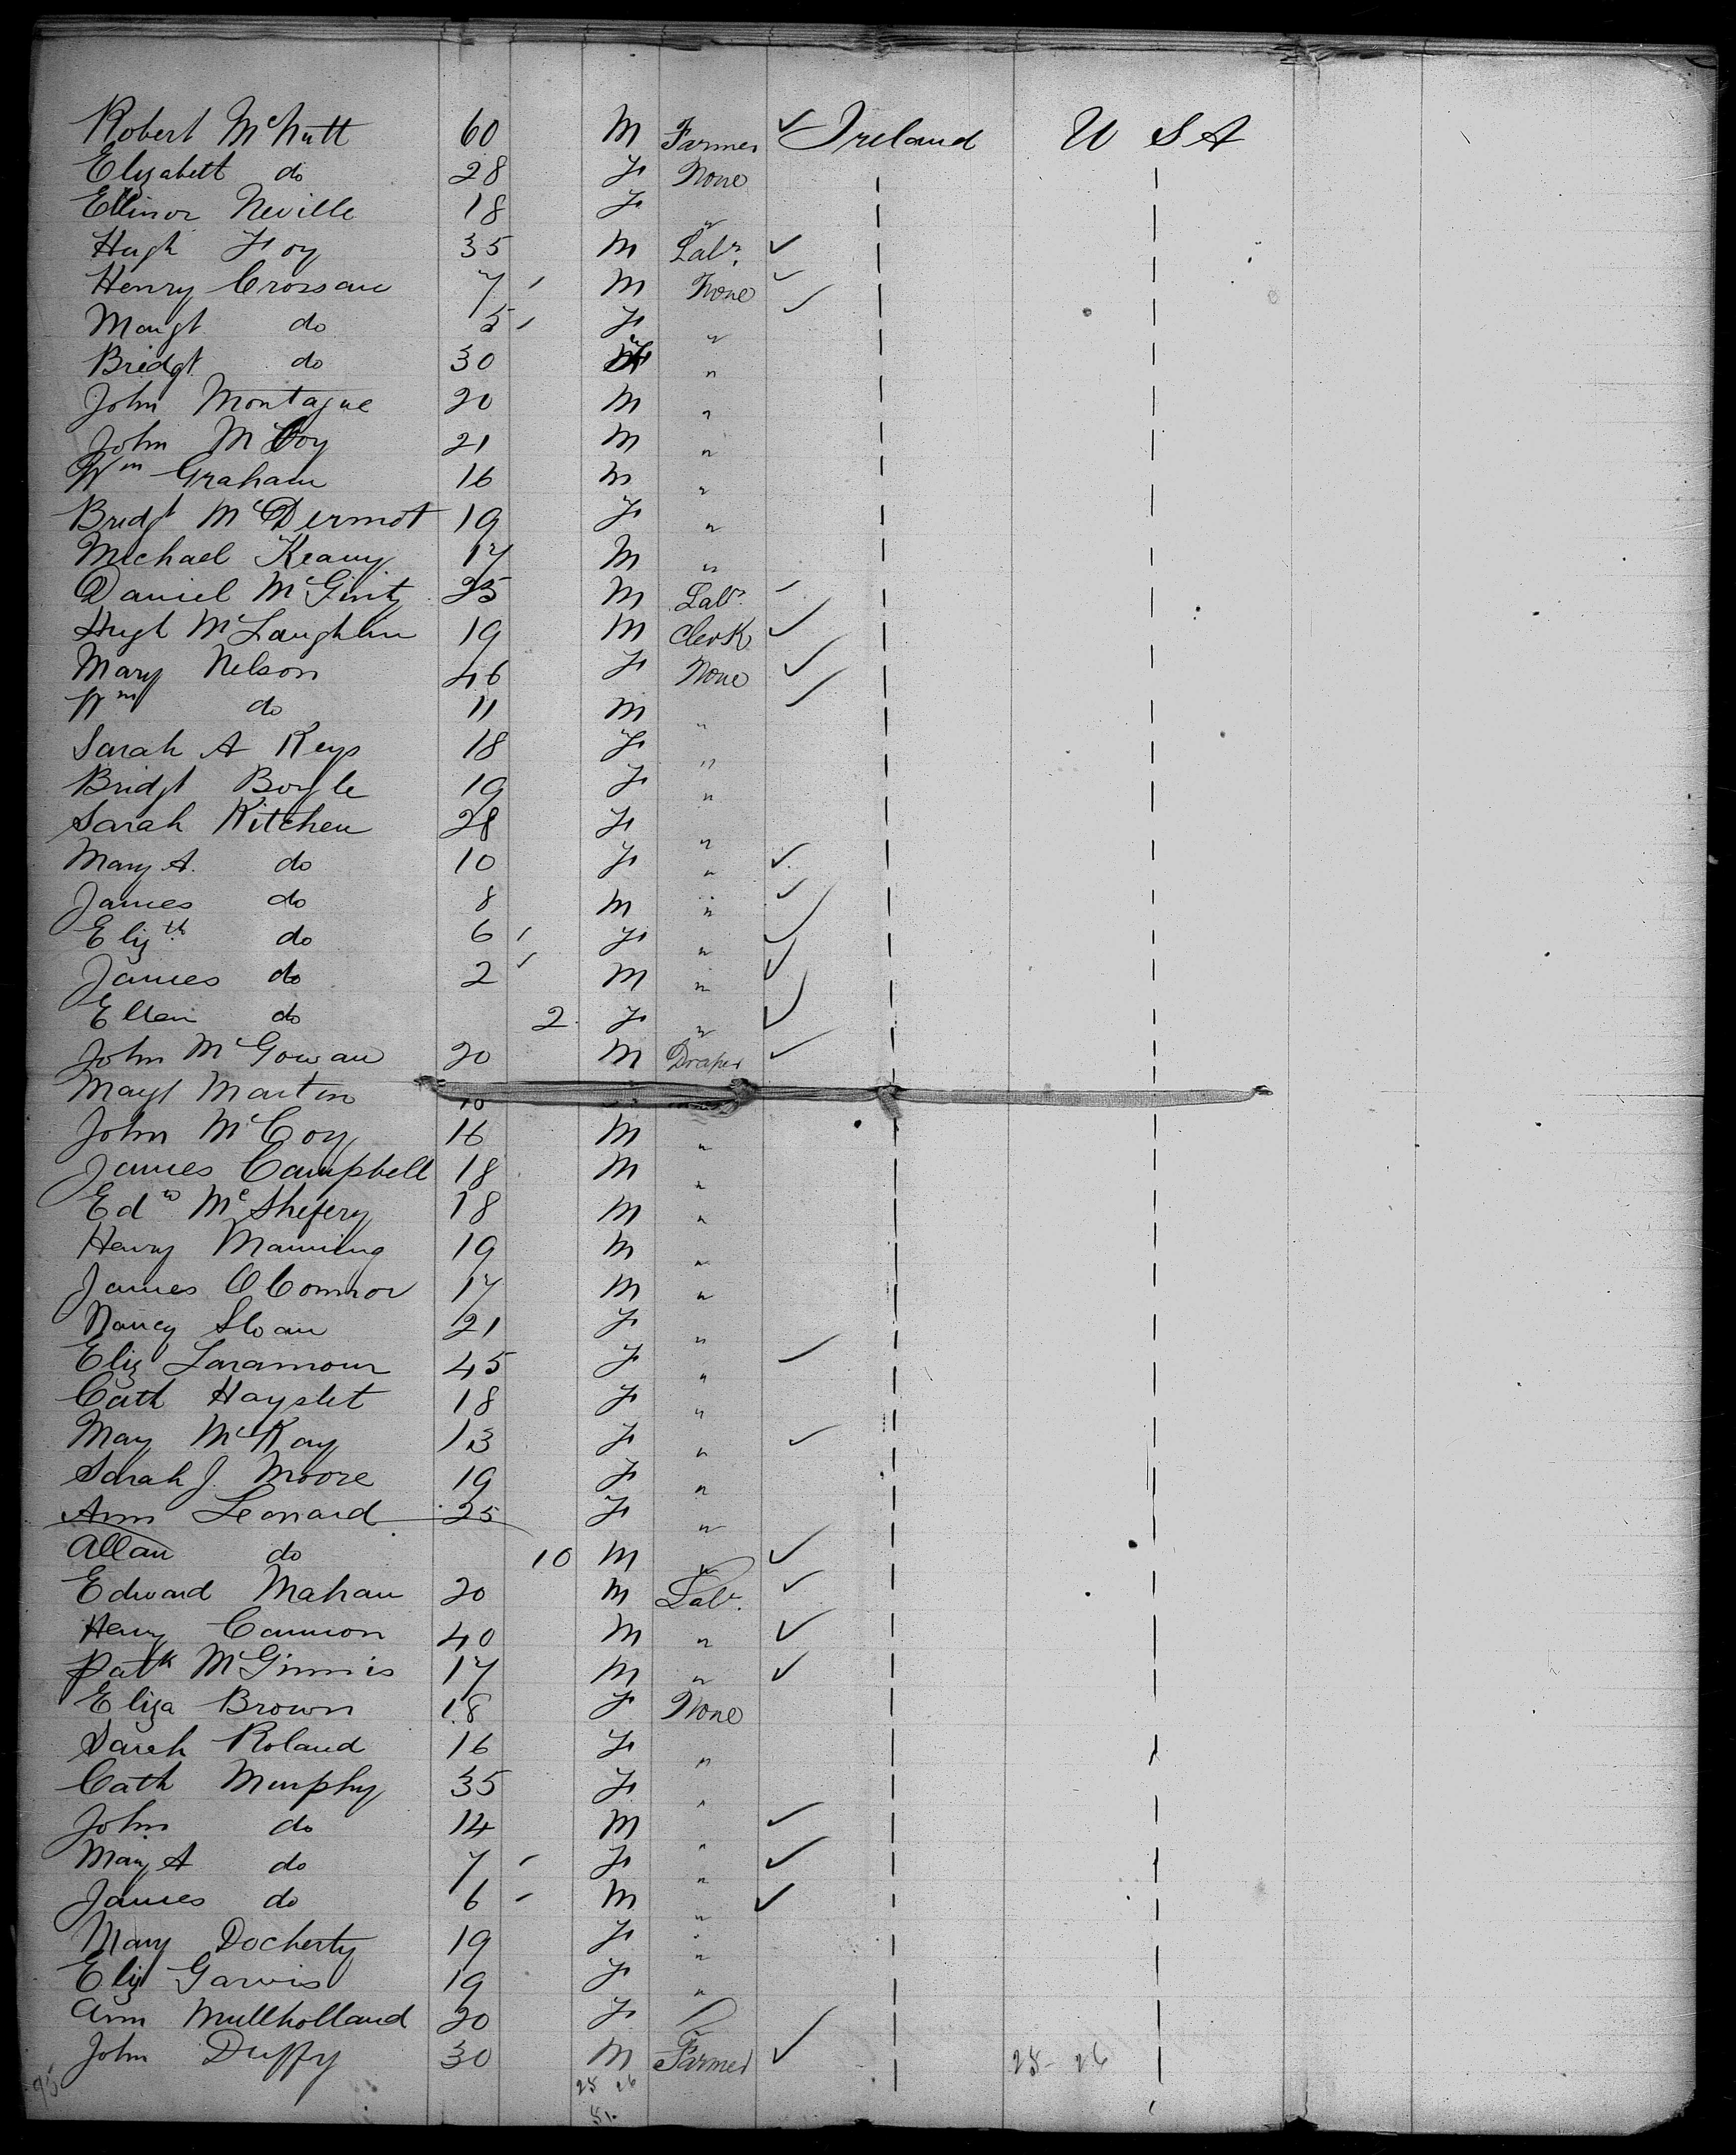 Robert McNutt 60 M Farmer ✓ Ireland U S A
Elizabett do 28 F None
Ellinor Neville 18 F "
Hugh Foy 35 M Labr. ✓
Henry Crossan 7 M None ✓
Margt do 5 F " ✓
Bridgt do 30 F "
John Montague 20 M "
John McCoy 21 M "
Wm Graham 16 M "
Bridgt McDermot 19 F "
Michael Keany 17 M "
Daniel McGinty 25 M Labr.
Hugh McLaughlin 19 M Clerk ✓
Mary Nelson 46 F None ✓
Wm do 11 M " ✓
Sarah A Keys 18 F "
Bridgt Boyle 19 F "
Sarah Kitchen 28 F "
Mary A. do 10 F " ✓
James do 8 M " ✓
Elizth do 6 F " ✓
James do 2 M " ✓
Ellen do 2 F " ✓
John McGowan 20 M Draper ✓
Magt Martin
John McCoy 16 M "
James Campbell 18 M "
Edwd McShefery 18 M "
Henry Manning 19 M "
James OConnor 17 M "
Nancy Sloan 21 F "
Eliz Laramour 45 F " ✓
Cath Hayslet 18 F "
May McKay 13 F " ✓
Sarah J. Moore 19 F "
Ann Leonard 25 F "
Allan do 10 M " ✓
Edward Mahan 20 M Labr. ✓
Henry Cannon 40 M " ✓
Patk McGinnis 17 M " ✓
Eliza Brown 18 F None
Sarah Roland 16 F "
Cath Murphy 35 F "
John do 14 M " ✓
Mary A do 7 F " ✓
James do 6 M " ✓
Mary Docherty 19 F "
Eliz Garvis 19 F "
Ann Mullholland 20 F "
John Duffy 30 M Farmer ✓ 25 - 26
25 26
51.